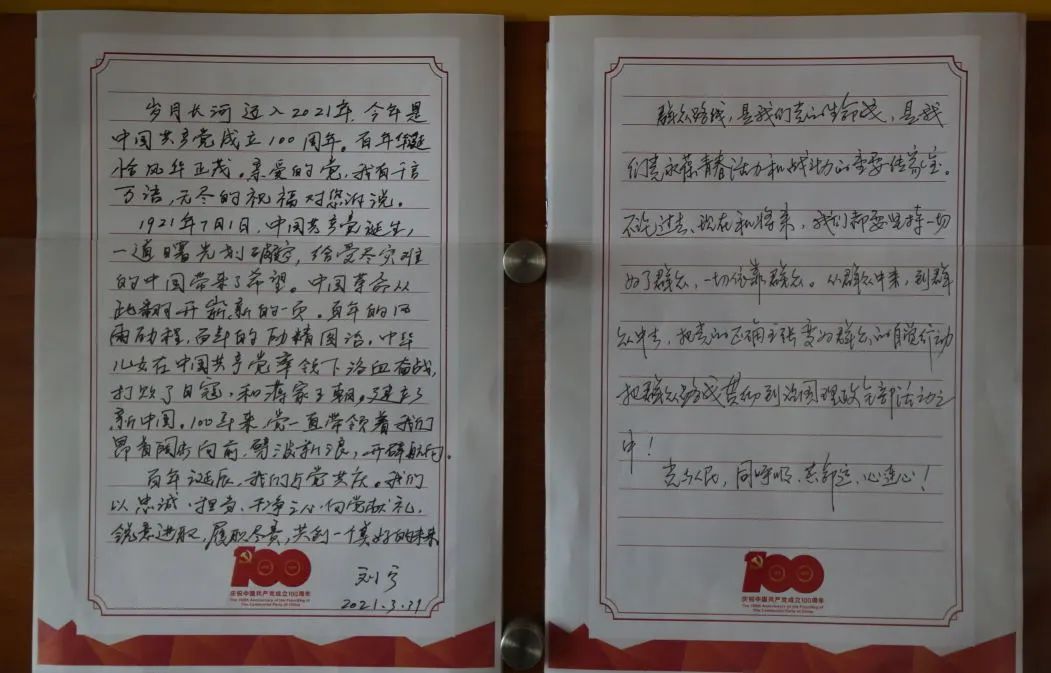 岁月长河迈入2021年，今年是
中国共产党成立100周年。百年华诞
恰风华正茂。亲爱的党，我有千言
万语，无尽的祝福对您诉说。
1921年7月1日，中国共产党诞生，
一道曙光划破，给受尽灾难
的中国带来了希望。中国革命从
此翻开崭新的一页。百年的风
雨历程，百年的励精图治。中华
儿女在中国共产党率领下浴血奋战，
打败了日寇，和蒋家王朝。建立了
新中国。100年来，党一直带领着我们
昂首阔步向前，劈波斩浪，开辟航向。
百年诞辰，我们与党共庆。我们
以忠诚、担当、干净之心向党献礼，
锐意进取，履职尽责，共创一个美好的未来
100
庆祝中国共产党成立100周年
The 100th Anniversary of the Founding of
The Communist Party of China
刘宁
2021.3.31
群众路线，是我们党的生命线，是我
们党永葆青春活力和战斗力的重要传家宝。
不论过去、现在和将来，我们都要坚持一切
为了群众，一切依靠群众。从群众中来，到群
众中去，把党的正确主张变为群众的自觉行动
把群众路线贯彻到治国理政全部活动之
中！
党与人民，同呼吸、共命运、心连心！
100
庆祝中国共产党成立100周年
The 100th Anniversary of the Founding of
The Communist Party of China